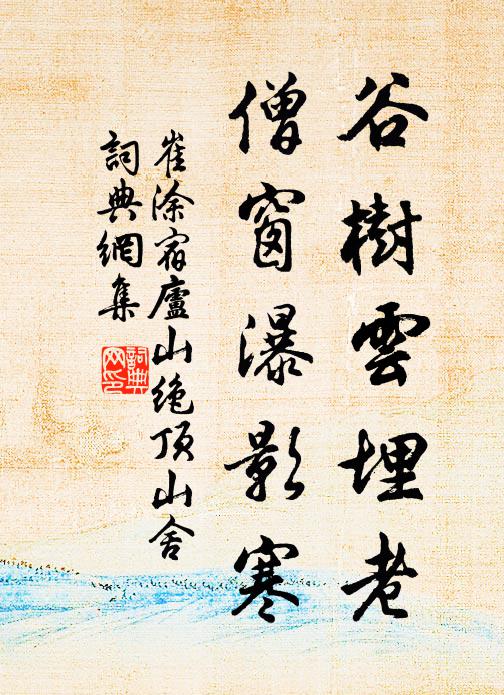 谷樹雲埋老
僧窗瀑影寒
崔涂宿廬山絶頂山舍
詞典網集
詞典網印